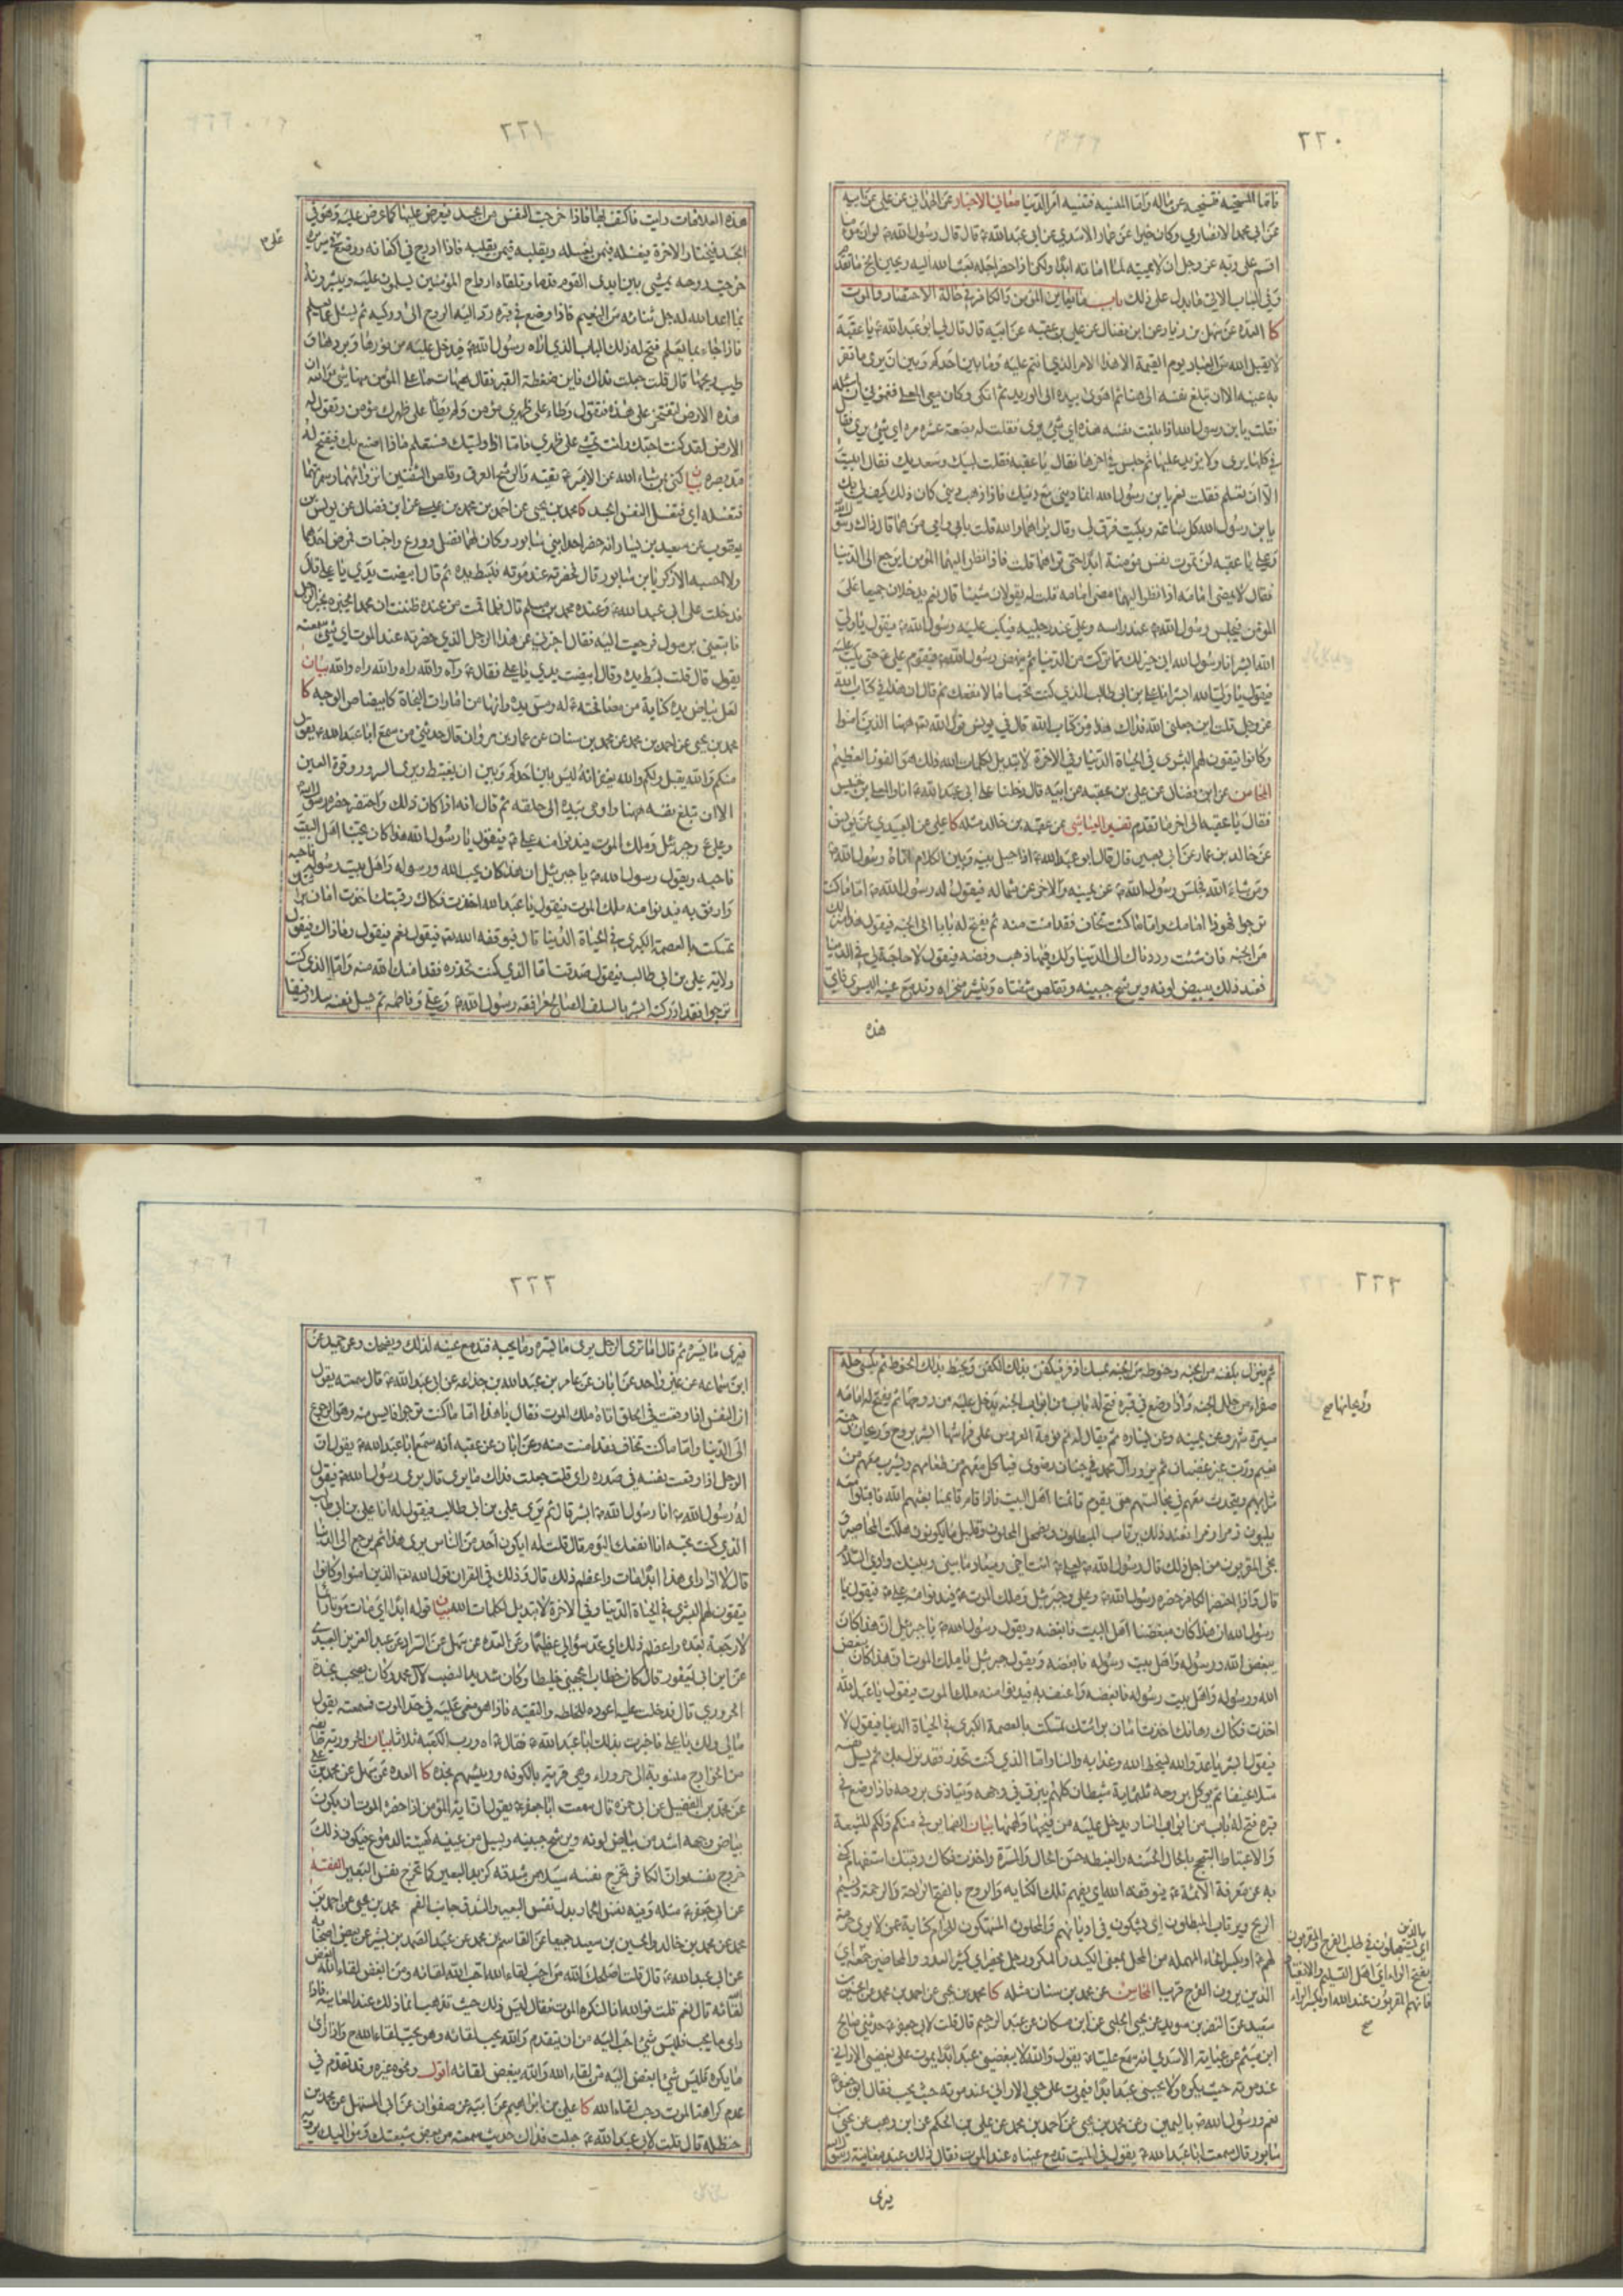 ٢٢٠
فامّا المنخيه فتنخيه عن ماله وامّا المنسيه فتنسيه امر الدّنيا معانى الاخبار عن على عن ابيه
عن ابى محمد الانصارى وكان خيرا عن عمار الاسدى عن ابى عبد الله ع قال قال رسول الله ص لو ان مؤمنا
اقسم على ربّه عز وجل ان لا يميته لما اماته ابدا ولكن اذا حضر اجله بعث الله اليه ريحين الخ ما تقدم
وفى الباب الاتى ما يدل على ذلك باب ما يعاين المؤمن والكافر فى حالة الاحتضار والموت
كا العدّه عن سهل بن زياد عن ابن فضال عن على بن عقبه عن ابيه قال قال لى ابو عبد الله ع يا عقبة
لا يقبل الله من العباد يوم القيمة الا هذا الامر الذى انتم عليه وما بين احدكم وبين ان يرى ما تقر
به عينه الا ان تبلغ نفسه الى هذه ثم اهوى بيده الى الوريد ثم اتكى وكان معى المعلى فغمزنى ان اسئله
فقلت يا بن رسول الله اذا بلغت نفسه هذه اى شئ يرى فقلت له بضعة عشر مره اى شئ يرى فقال
فى كلها يرى ولا يزيد عليها ثم جلس فى اخرها فقال يا عقبه فقلت لبيك وسعديك فقال ابيت
الا ان تعلم فقلت نعم يا بن رسول الله انما دينى مع دينك فاذا ذهب دينى كان ذلك كيف لى بك
يا بن رسول الله كل ساعة وبكيت فرق لى وقال يراهما والله قلت بابى وامى من هما قال ذاك رسول الله
وعلى يا عقبه لن تموت نفس مؤمنة ابدا حتى تراهما قلت فاذا نظر اليهما المؤمن ايرجع الى الدنيا
فقال لا يمضى امامه اذا نظر اليهما مضى امامه قلت له يقولان شيئا قال نعم يدخلان جميعا على
المؤمن فيجلس رسول الله ص عند راسه وعلى عند رجليه فيكب عليه رسول الله ص فيقول يا ولى
الله ابشر انا رسول الله انى خير لك مما تركت من الدنيا ثم ينهض رسول الله ص فيقوم على ع حتى يكب عليه
فيقول يا ولى الله ابشر انا على بن ابى طالب الذى كنت تحبه اما لانفعنك ثم قال ان هذا فى كتاب الله
عز وجل قلت اين جعلنى الله فداك هذا من كتاب الله قال فى يونس قول الله تع ههنا الذين امنوا
وكانوا يتقون لهم البشرى فى الحياة الدنيا وفى الاخرة لا تبديل لكلمات الله ذلك هو الفوز العظيم
المحاسن عن ابن فضال عن على بن عقبه عن ابيه قال دخلنا على ابى عبد الله ع انا والمعلى بن خنيس
فقال يا عقبه الى اخر ما تقدم تفسير العياشى عن عقبه بن خالد مثله كا على عن العبيدى عن يونس
عن خالد بن عمار عن ابى بصير قال قال ابو عبد الله ع اذا حيل بينه وبين الكلام اتاه رسول الله ص
ومن شاء الله فجلس رسول الله ص عن يمينه والاخر عن شماله فيقول له رسول الله ص امّا ما كنت
ترجوا فهوذا امامك وامّا ما كنت تخاف فقد امنت منه ثم يفتح له بابا الى الجنة فيقول هذا منزلك
من الجنه فان شئت رددناك الى الدنيا ولك فيها ذهب وفضه فيقول لا حاجة لى فى الدنيا
فعند ذلك يبيض لونه ويرشح جبينه وتقلص شفتاه وتنتشر منخراه وتدمع عينه اليسرى فاى
هذه
٢٢١
هذه العلامات رايت فاكتف بها فاذا خرجت النفس من الجسد فيعرض عليها كما عرض عليه وهو فى
الجسد فيختار الاخرة فيغسله فيمن يغسله ويقلبه فيمن يقلبه فاذا ادرج فى اكفانه ووضع على سريره
خرجت روحه يمشى بين ايدى القوم قدما وتلقاه ارواح المؤمنين يسلمون عليه ويبشرونه
بما اعد الله له جل ثنائه من النعيم فاذا وضع فى قبره رد اليه الروح الى وركيه ثم يسئل عما يعلم
فاذا جاء بما يعلم فتح له ذلك الباب الذى اراه رسول الله ص فيدخل عليه من نورها وبردها و
طيب ريحها قال قلت جعلت فداك فاين ضغطة القبر فقال هيهات ما على المؤمن منها شئ والله ان
هذه الارض لتفتخر على هذه فتقول وطاء على ظهرى مؤمن ولم يطا على ظهرك مؤمن وتقول له
الارض لقد كنت احبك وانت تمشى على ظهرى فاما اذا وليتك فستعلم ماذا اصنع بك فيفتح له
مد بصره بيان كنى بمن شاء الله عن الائمة ع تقية والرشح العرق وقلص الشفتين انزوائهما وتشمرهما
فتغسله اى فتغسل النفس الجسد كا محمد بن يحيى عن احمد بن محمد بن عيسى عن ابن فضال عن يونس بن
يعقوب عن سعيد بن يسار انه حضر احد ابنى سابور وكان لهما فضل وورع واخبات فمرض احدهما
ولا احسبه الا زكريا بن سابور قال فحضرته عند موته فبسط يده ثم قال ابيضت يدى يا على قال
فدخلت على ابى عبد الله ع وعنده محمد بن مسلم قال فلما قمت من عنده ظننت ان محمدا يخبره بخبر الرجل
فاتبعنى برسول فرجعت اليه فقال اخبرنى عن هذا الرجل الذى حضرته عند الموت اى شئ سمعته
يقول قال قلت بسط يده وقال ابيضت يدى يا على فقال ع رآه والله راه والله راه والله بيان
لعل بياض يده كناية من مصافحته ع له ومسّ يده وانها من امارات النجاة كابيضاض الوجه كا
محمد بن يحيى عن احمد بن محمد عن محمد بن سنان عن عمار بن مروان قال حدثنى من سمع ابا عبد الله ع يقول
منكم والله يقبل ولكم والله يغفر انه ليس بين احدكم وبين ان يغتبط ويرى السرور وقرة العين
الا ان تبلغ نفسه ههنا واومى بيده الى حلقه ثم قال انه اذا كان ذلك واحتضر حضره رسول الله
وعلى ع وجبرئيل وملك الموت فيدنوا منه على ع فيقول يا رسول الله هذا كان يحبنا اهل البيت
فاحبه ويقول رسول الله ص يا جبرئيل ان هذا كان يحب الله ورسوله واهل بيت رسوله فاحبه
وارفق به فيدنوا منه ملك الموت فيقول يا عبد الله اخذت فكاك رقبتك اخذت امان برائتك
تمسكت بالعصمة الكبرى فى الحياة الدنيا قال فيوفقه الله تع فيقول نعم فيقول وما ذاك فيقول
ولاية على بن ابى طالب فيقول صدقت اما الذى كنت تحذره فقد امنك الله منه واما الذى كنت
ترجوا فقد ادركته ابشر بالسلف الصالح مرافقة رسول الله ص وعلى وفاطمه ثم يسل نفسه سلا رفيقا
٢٢٢
ثم ينزل بكفنه من الجنه وحنوطه من الجنه بمسك اذفر فيكفن بذلك الكفن ويحنط بذلك الحنوط ثم يكسى حلة
صفراء من حلل الجنه واذا وضع فى قبره فتح له باب من ابواب الجنه يدخل عليه من روحها ثم يفتح له امامه
وريحانها صح
مسيرة شهر وعن يمينه وعن يساره ثم يقال له نم نومة العروس على فراشها ابشر بروح وريحان وجنة
نعيم ورب غير غضبان ثم يزور آل محمد فى جنان رضوى فياكل معهم من طعامهم ويشرب معهم من
شرابهم ويتحدث معهم فى مجالسهم حتى يقوم قائمنا اهل البيت فاذا قام قائمنا بعثهم الله فاقبلوا معه
يلبون زمرا زمرا فعند ذلك يرتاب المبطلون ويضمحل المحلون وقليل ما يكونون هلكت المحاضير و
نجى المقربون من اجل ذلك قال رسول الله ص لعلى ع انت اخى وميعاد ما بينى وبينك وادى السلام
قال واذا احتضر الكافر حضره رسول الله ص وعلى وجبرئيل وملك الموت ع فيدنوا منه على ع فيقول يا
رسول الله ان هذا كان مبغضنا اهل البيت فابغضه ويقول رسول الله ص يا جبرئيل ان هذا كان
يبغض الله ورسوله واهل بيت رسوله فابغضه ويقول جبرئيل يا ملك الموت ان هذا كان يبغض
الله ورسوله واهل بيت رسوله فابغضه واعنف به فيدنوا منه ملك الموت فيقول يا عبد الله
اخذت فكاك رهانك اخذت امان برائتك تمسكت بالعصمة الكبرى فى الحياة الدنيا فيقول لا
فيقول ابشر يا عدو الله بسخط الله وعذابه والنار اما الذى كنت تحذر فقد نزل بك ثم يسل نفسه
سلا عنيفا ثم يوكل بروحه ثلثماية شيطان كلهم يبزق فى وجهه ويتاذى بروحه فاذا وضع فى
قبره فتح له باب من ابواب النار يدخل عليه من فيحها ولهبها بيان الضماير فى منكم ولكم للشيعة
والاغتباط التبجح بالحال الحسنه والغبطه حسن الحال والمسرة واخذت فكاك رقبتك استفهام كنى
به عن معرفة الائمة ع فيوفقه الله اى يفهم تلك الكنايه والروح بالفتح الراحة والرحمة ونسيم
الريح ويرتاب المبطلون اى يشكون فى اديانهم والمحلون المنتهكون للحرام كناية عمن لا يرى حرمة
الذين يرون الفرج قريبا المحاسن عن محمد بن سنان مثله كا محمد بن يحيى عن احمد بن محمد عن الحسين بن
سعيد عن النضر بن سويد عن يحيى الحلبى عن ابن مسكان عن عبد الرحيم قال قلت لابى جعفر ع حدثنى صالح
ابن ميثم عن عباية الاسدى انه سمع عليا ع يقول والله لا يبغضنى عبد ابدا يموت على بغضى الا رانى
عند موته حيث يكره ولا يحبنى عبد ابدا فيموت على حبى الا رانى عند موته حيث يحب فقال ابو جعفر ع
نعم ورسول الله ص باليمين وعن محمد بن يحيى عن احمد بن محمد عن على بن الحكم عن ابن وهب عن يحيى بن
سابور قال سمعت ابا عبد الله ع يقول فى الميت تدمع عيناه عند الموت فقال ذلك عند معاينة رسول الله
يرى
٢٢٣
فيرى ما يسره ثم قال اما ترى الرجل يرى ما يسره وما يحبه فتدمع عينه لذلك ويضحك وعن حميد عن
ابن سماعه عن غير واحد عن ابان عن عامر بن عبد الله بن جذاعه عن ابى عبد الله ع قال سمعته يقول
ان النفس اذا وقعت فى الحلق اتاه ملك الموت فقال يا هذا اما ما كنت ترجوا فايس منه وهو الرجوع
الى الدنيا واما ما كنت تخاف فقد امنت منه وعن ابان عن عقبه انه سمع ابا عبد الله ع يقول ان
الرجل اذا وقعت نفسه فى صدره راى قلت جعلت فداك ما يرى قال يرى رسول الله ص فيقول
له رسول الله ص انا رسول الله ص ابشر قال ثم يرى على بن ابى طالب فيقول له انا على بن ابى طالب
الذى كنت تحبه انا انفعك اليوم قال قلت له ايكون احد من الناس يرى هذا ثم يرجع الى الدنيا
قال لا اذا راى هذا ابدا مات واعظم ذلك قال وذلك فى القران قول الله تع الذين امنوا وكانوا
يتقون لهم البشرى فى الحياة الدنيا وفى الاخرة لا تبديل لكلمات الله بيان قوله ابدا اى مات موتا
لا رجعة بعده واعظم ذلك اى عد سؤالى عظيما وعن العده عن سهل عن عبد العزيز العبدى
عن ابن ابى يعفور قال كان خطاب الجهنى خليطا وكان شديد النصب لآل محمد وكان يصحب نجدة
الحرورى قال فدخلت عليه اعوده للخلطه والتقيه فاذا هو مغمى عليه فى حد الموت فسمعته يقول
مالى ولك يا على فاخبرت بذلك ابا عبد الله ع فقال ع راه ورب الكعبة ثلاثا بيان الحرورية
من الخوارج منسوبة الى حروراء وهى قرية بالكوفه ورئيسهم نجده كا العده عن سهل عن محمد بن على
عن محمد بن الفضيل عن ابى حمزه قال سمعت ابا جعفر ع يقول ان آية المؤمن اذا حضره الموت ان يكون
بياض وجهه اشد من بياض لونه ويرشح جبينه ويسيل من عينيه كهيئة الدموع فيكون ذلك
خروج نفسه وان الكافر تخرج نفسه سيلا من شدقه كزبد البعير كما تخرج نفس البعير الفقيه
عن ابى جعفر ع مثله وفيه نفس الحمار بدل نفس البعير والشدق جانب الفم محمد بن يحيى عن احمد بن
محمد عن محمد بن خالد والحسين بن سعيد جميعا عن القاسم بن محمد عن عبد الصمد بن بشير عن بعض اصحابه
عن ابى عبد الله ع قال قلت اصلحك الله من احب لقاء الله احب الله لقائه ومن ابغض لقاء الله ابغض
لقائه قال نعم قلت فو الله انا لنكره الموت فقال ليس ذلك حيث تذهب انما ذلك عند المعاينة اذا
راى ما يحب فليس شئ احب اليه من ان يتقدم والله يحب لقائه وهو يحب لقاء الله ح واذا راى
ما يكره فليس شئ ابغض اليه من لقاء الله والله يبغض لقائه اقول ونحوه غيره وقد تقدم فى
عدم كراهة الموت وحب لقاء الله كا على بن ابراهيم عن ابيه عن صفوان عن ابى المستهل عن محمد بن
حنظله قال قلت لابى عبد الله ع جعلت فداك حديث سمعته من بعض شيعتك ومواليك يرويه